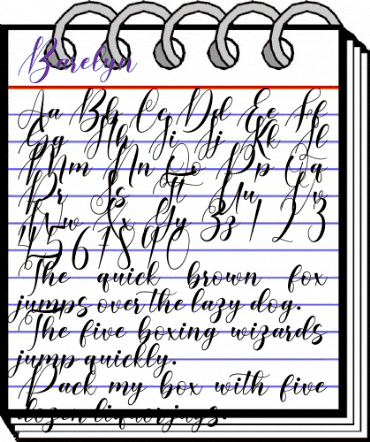 Barelyn
Aa Bb Cc Dd Ee Ff
Gg Hh Ii Jj Kk Ll
Mm Nn Oo Pp Qq
Rr Ss Tt Uu Vv
Ww Xx Yy Zz 1 2 3
4 5 6 7 8 9 0
The quick brown fox
jumps over the lazy dog.
The five boxing wizards
jump quickly.
Pack my box with five
dozen liquor jugs.